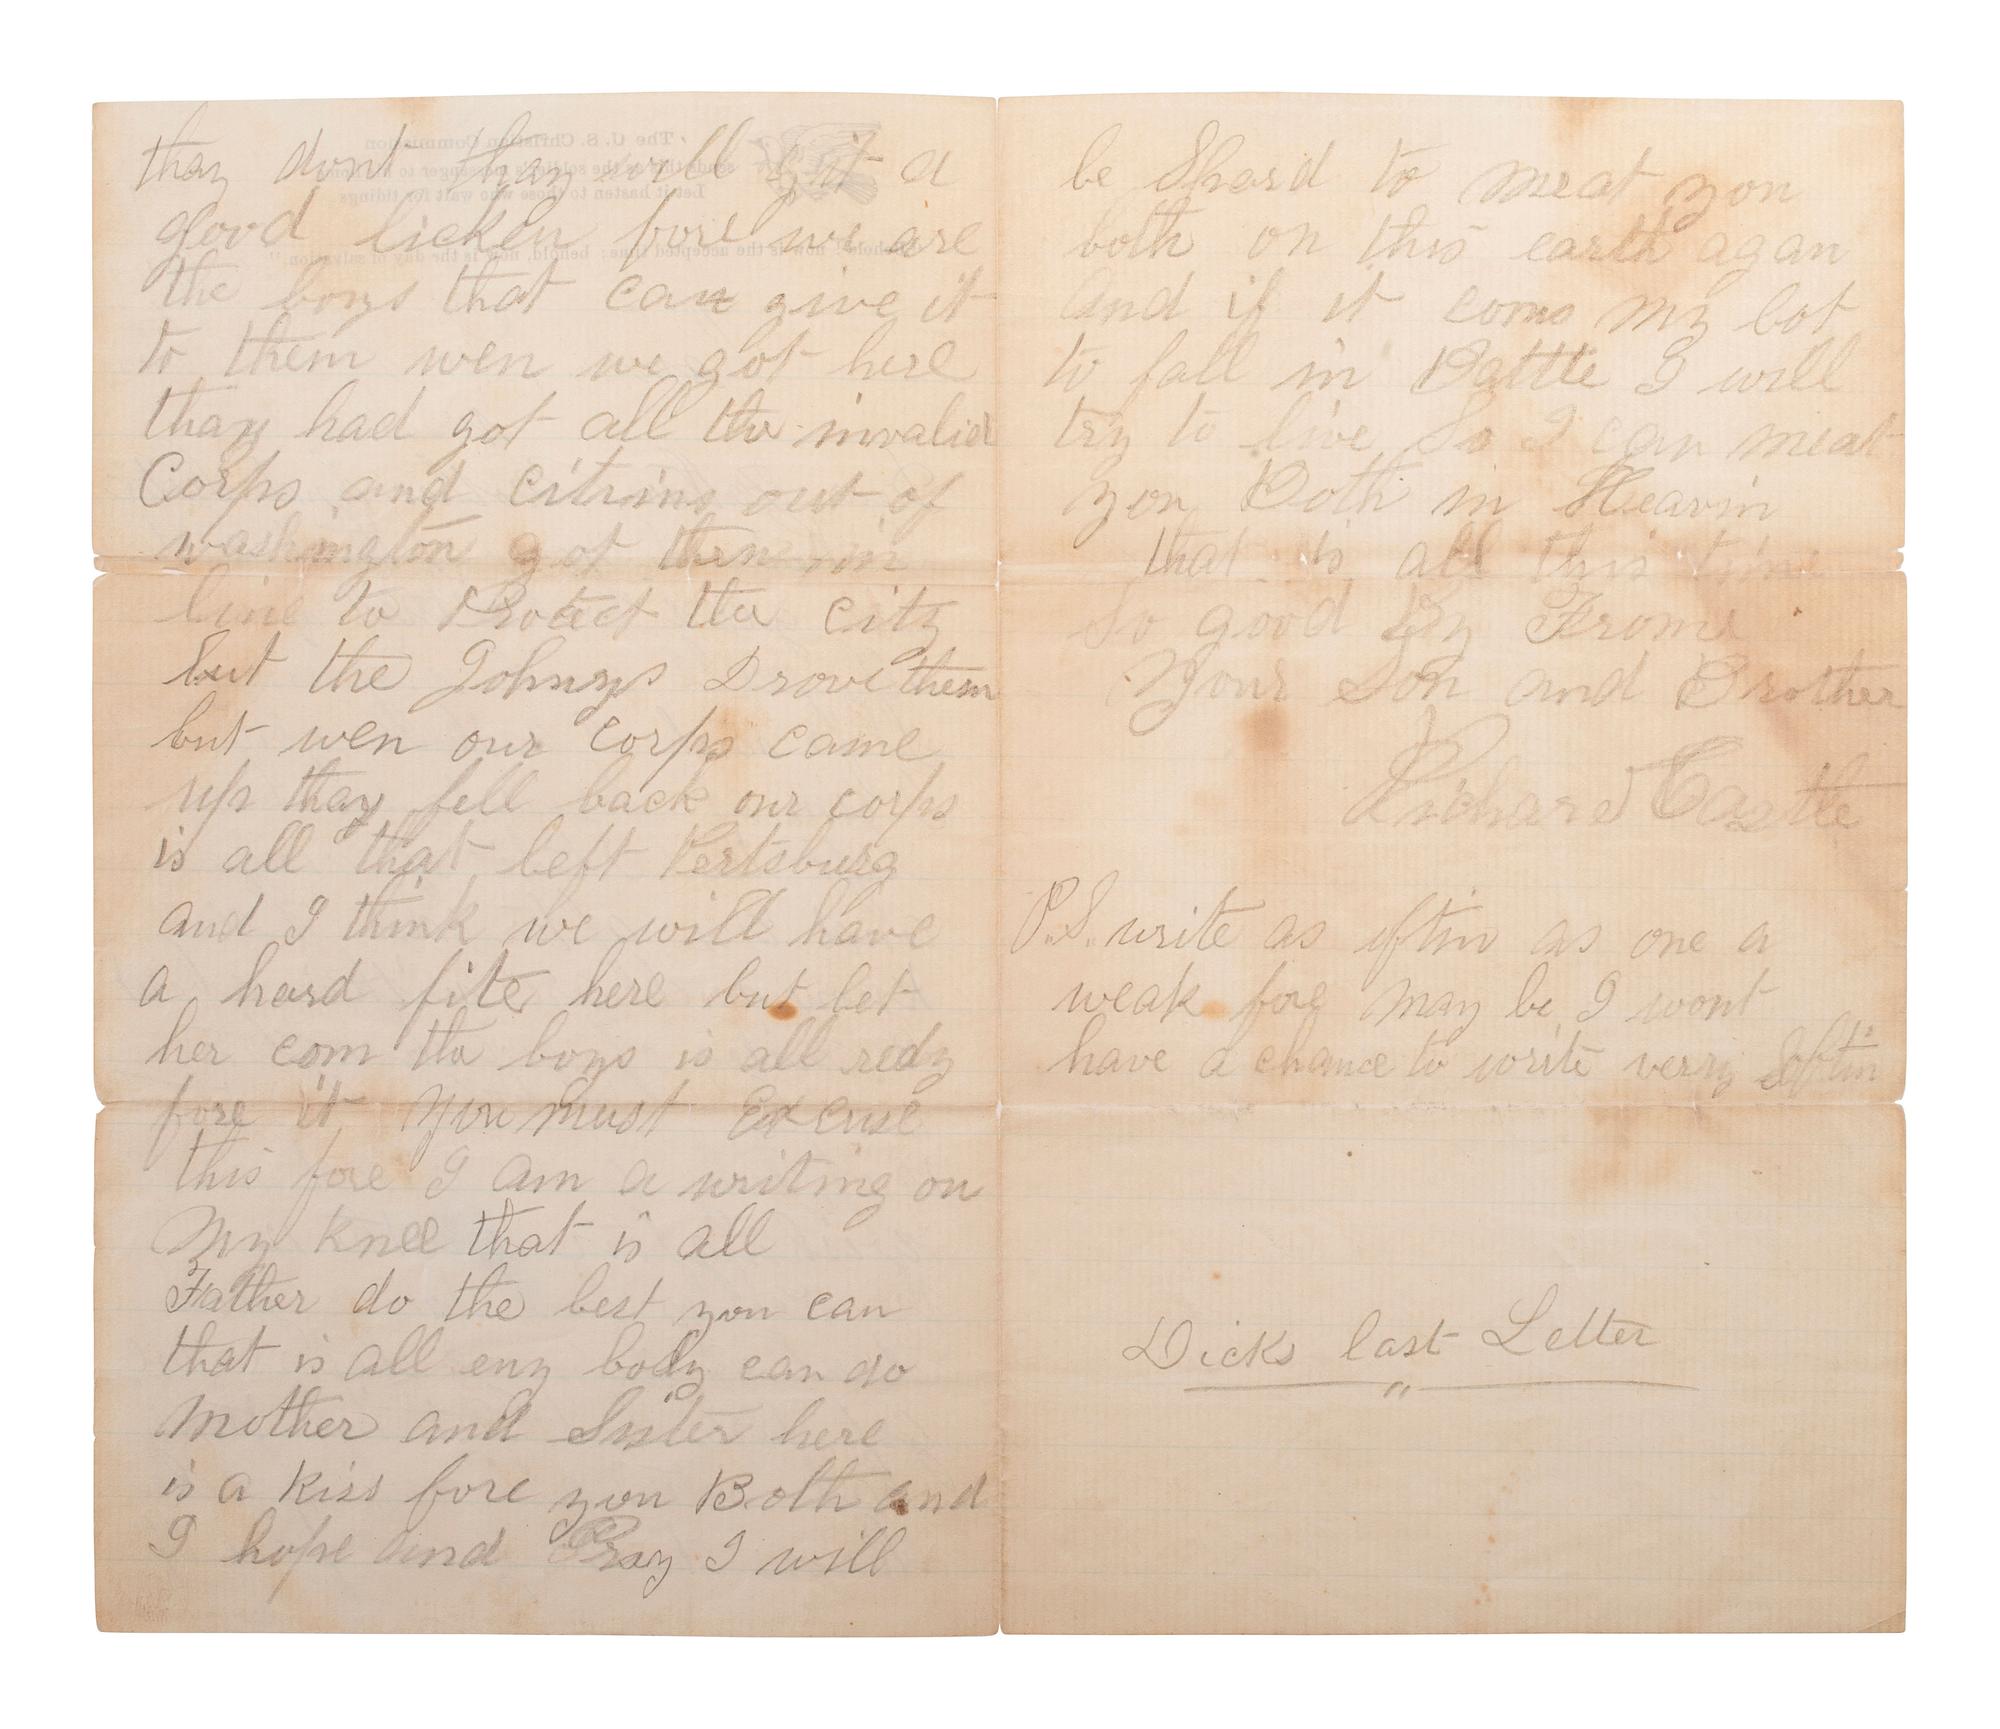 thay dont thay will git a
good licken fore we are
the boys that can give it
to them wen we got here
thay had got all the invalid
Corps and citzins out of
washington got them in
line to Protect the city
but the Johnys Drove them
but wen our corps came
up thay fell back our corps
is all that left Pertsburg
and I think we will have
a hard fite here but let
her com the boys is all redy
fore it you must Excuse
this fore I am a writing on
my knee that is all
Father do the best you can
that is all eny body can do
Mother and Sister here
is a kiss fore you Both and
I hope and Pray I will
be Spard to meat you
both on this earth agan
and if it coms my lot
to fall in Battle I will
try to live So I can meat
you Both in Heavin
that is all this time
So good By From
Your Son and Brother
Richard Castle
P.S. write as oftin as one a
weak fore may be I wont
have a chance to write verry oftin
Dicks last Letter
The U. S. Christian Commission
sends this as the soldier's messenger to his home.
Let it hasten to those who wait for tidings
"Behold! now is the accepted time; behold, now is the day of salvation."